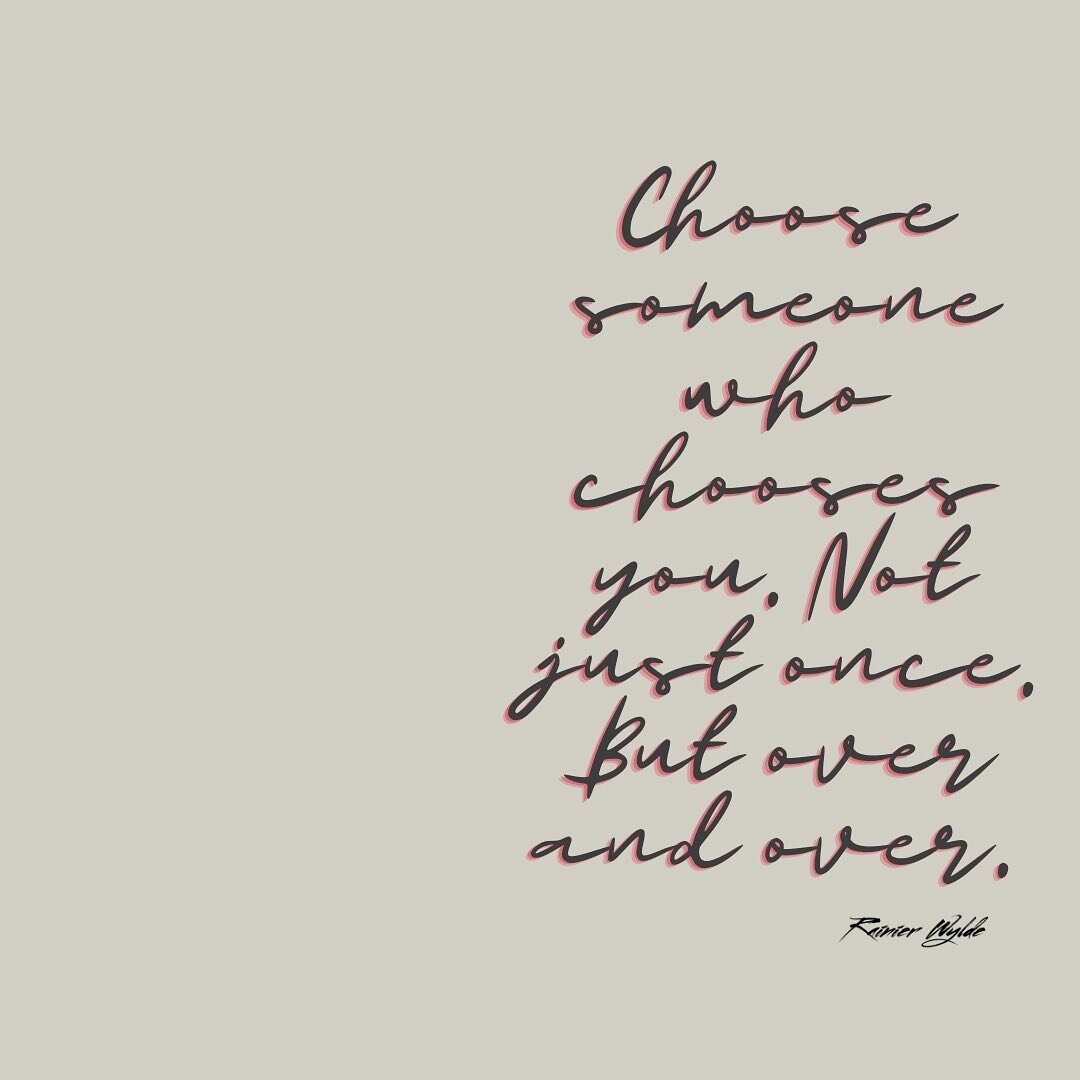 Choose
someone
who
chooses
you. Not
just once.
But over
and over.
Rainier Wylde